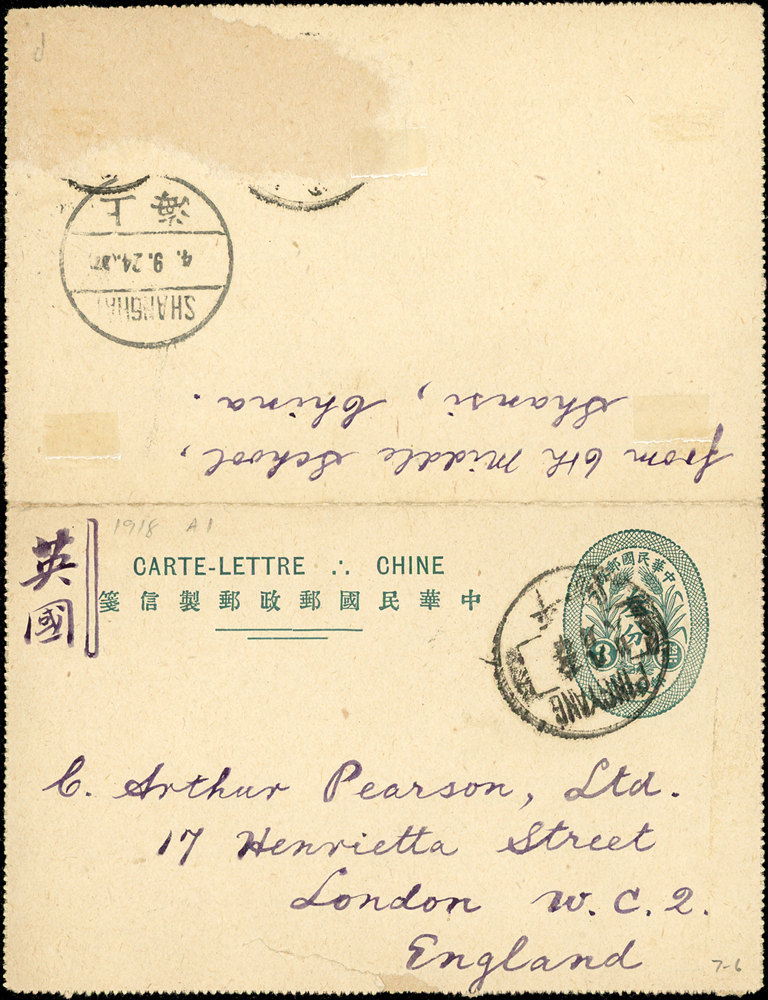 上海
4. 9. 24
SHANGHAI
from 6th Middle School,
Shansi, China.
1918 A1
英國
CARTE-LETTRE ∴ CHINE
中華民國郵政郵製信箋
中華民國郵
分
3
PINGYANG
C. Arthur Pearson, Ltd.
17 Henrietta Street
London W.C.2.
England
7-6